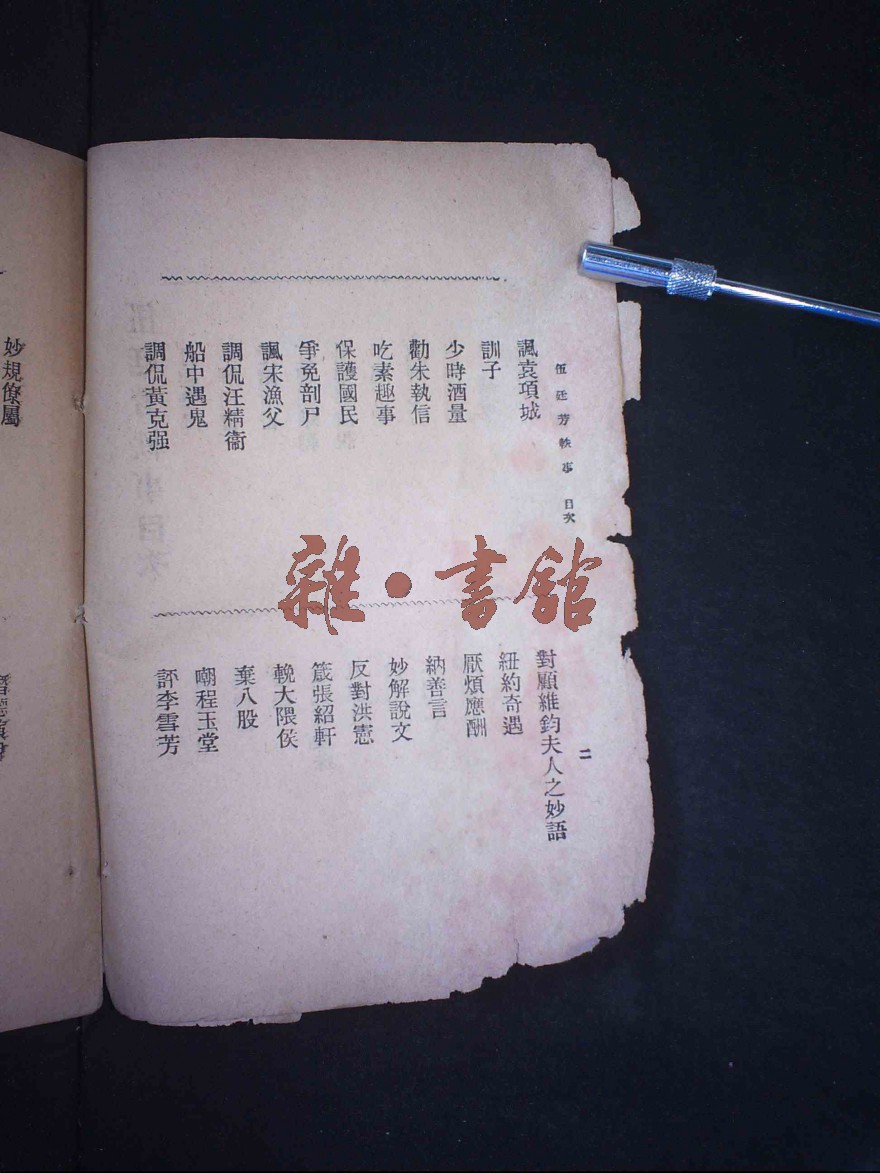 伍廷芳軼事 目次
二
諷袁項城
訓子
少時酒量
勸朱執信
吃素趣事
保護國民
爭免剖尸
諷宋漁父
調侃汪精衞
船中遇鬼
調侃黃克强
對顧維鈞夫人之妙語
紐約奇遇
厭煩應酬
納善言
妙解說文
反對洪憲
箴張紹軒
輓大隈侯
棄八股
嘲程玉堂
評李雪芳
妙規僚屬
雜·書館